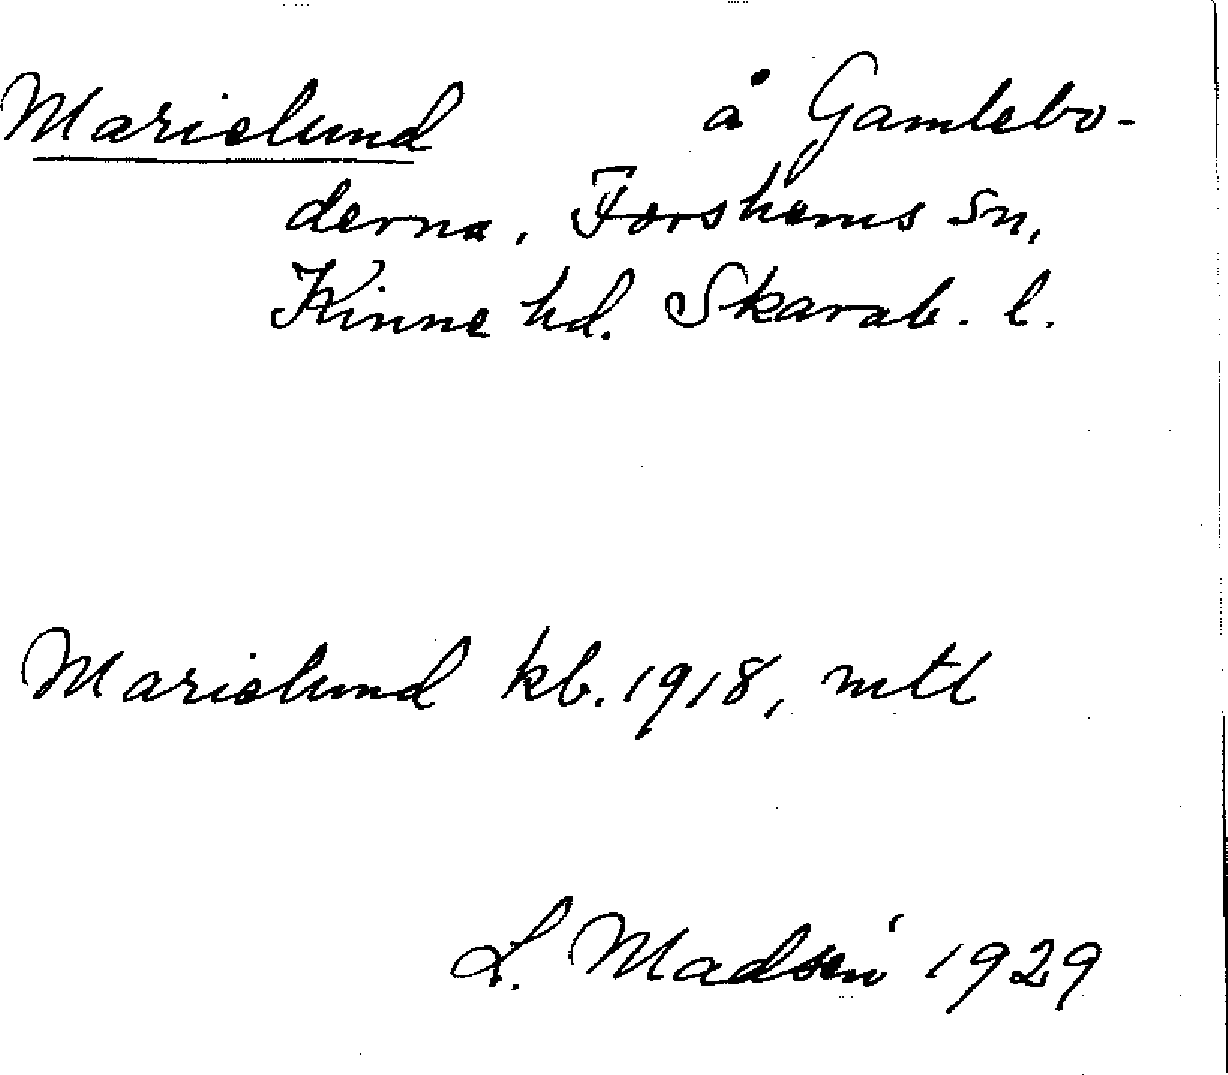 Marielund å Gamlebo-
derna, Forshems sn,
Kinne hd. Skarab. l.
Marielund kb. 1918, mtl
L. Madsén 1929